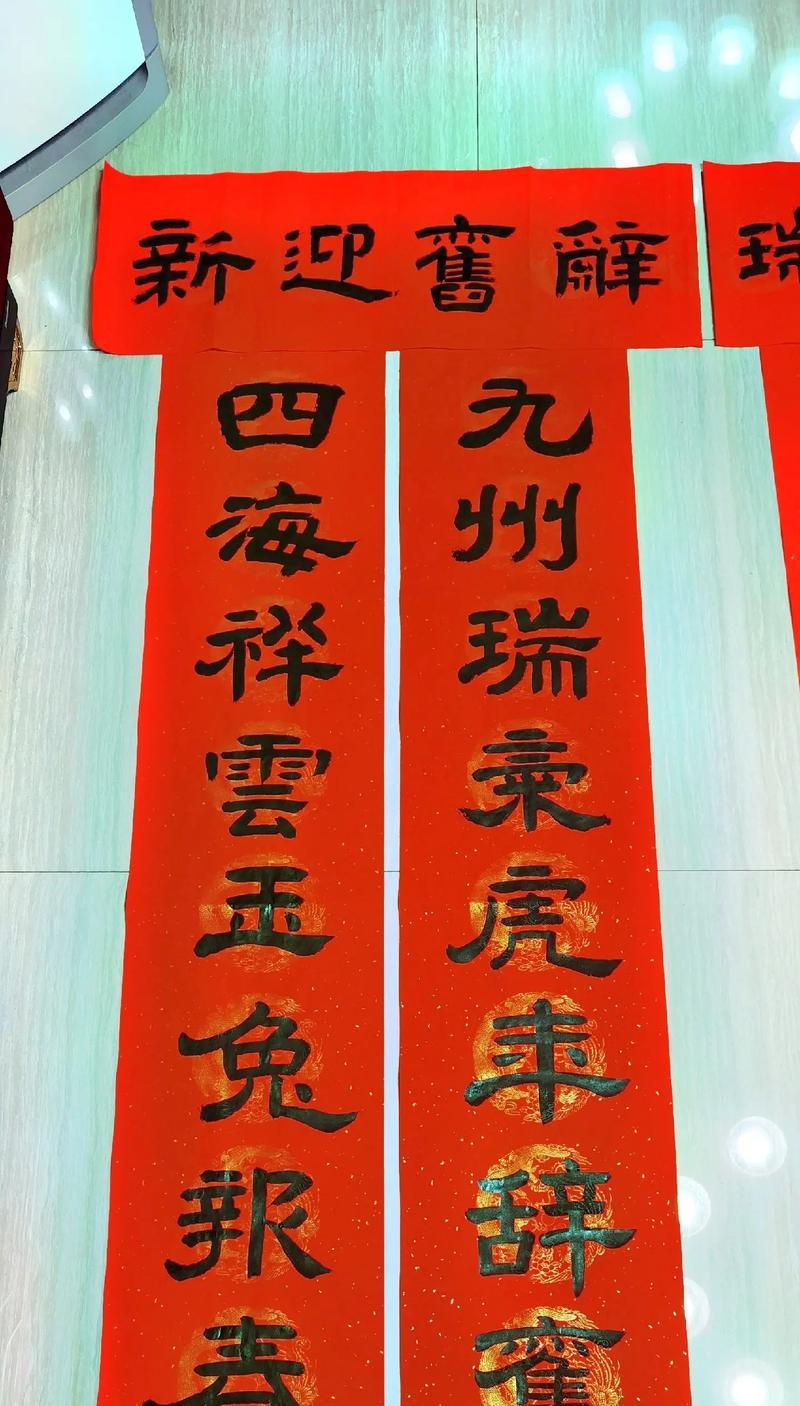 辭舊迎新
瑞
九州瑞氣虎年辭舊
四海祥雲玉兔報春